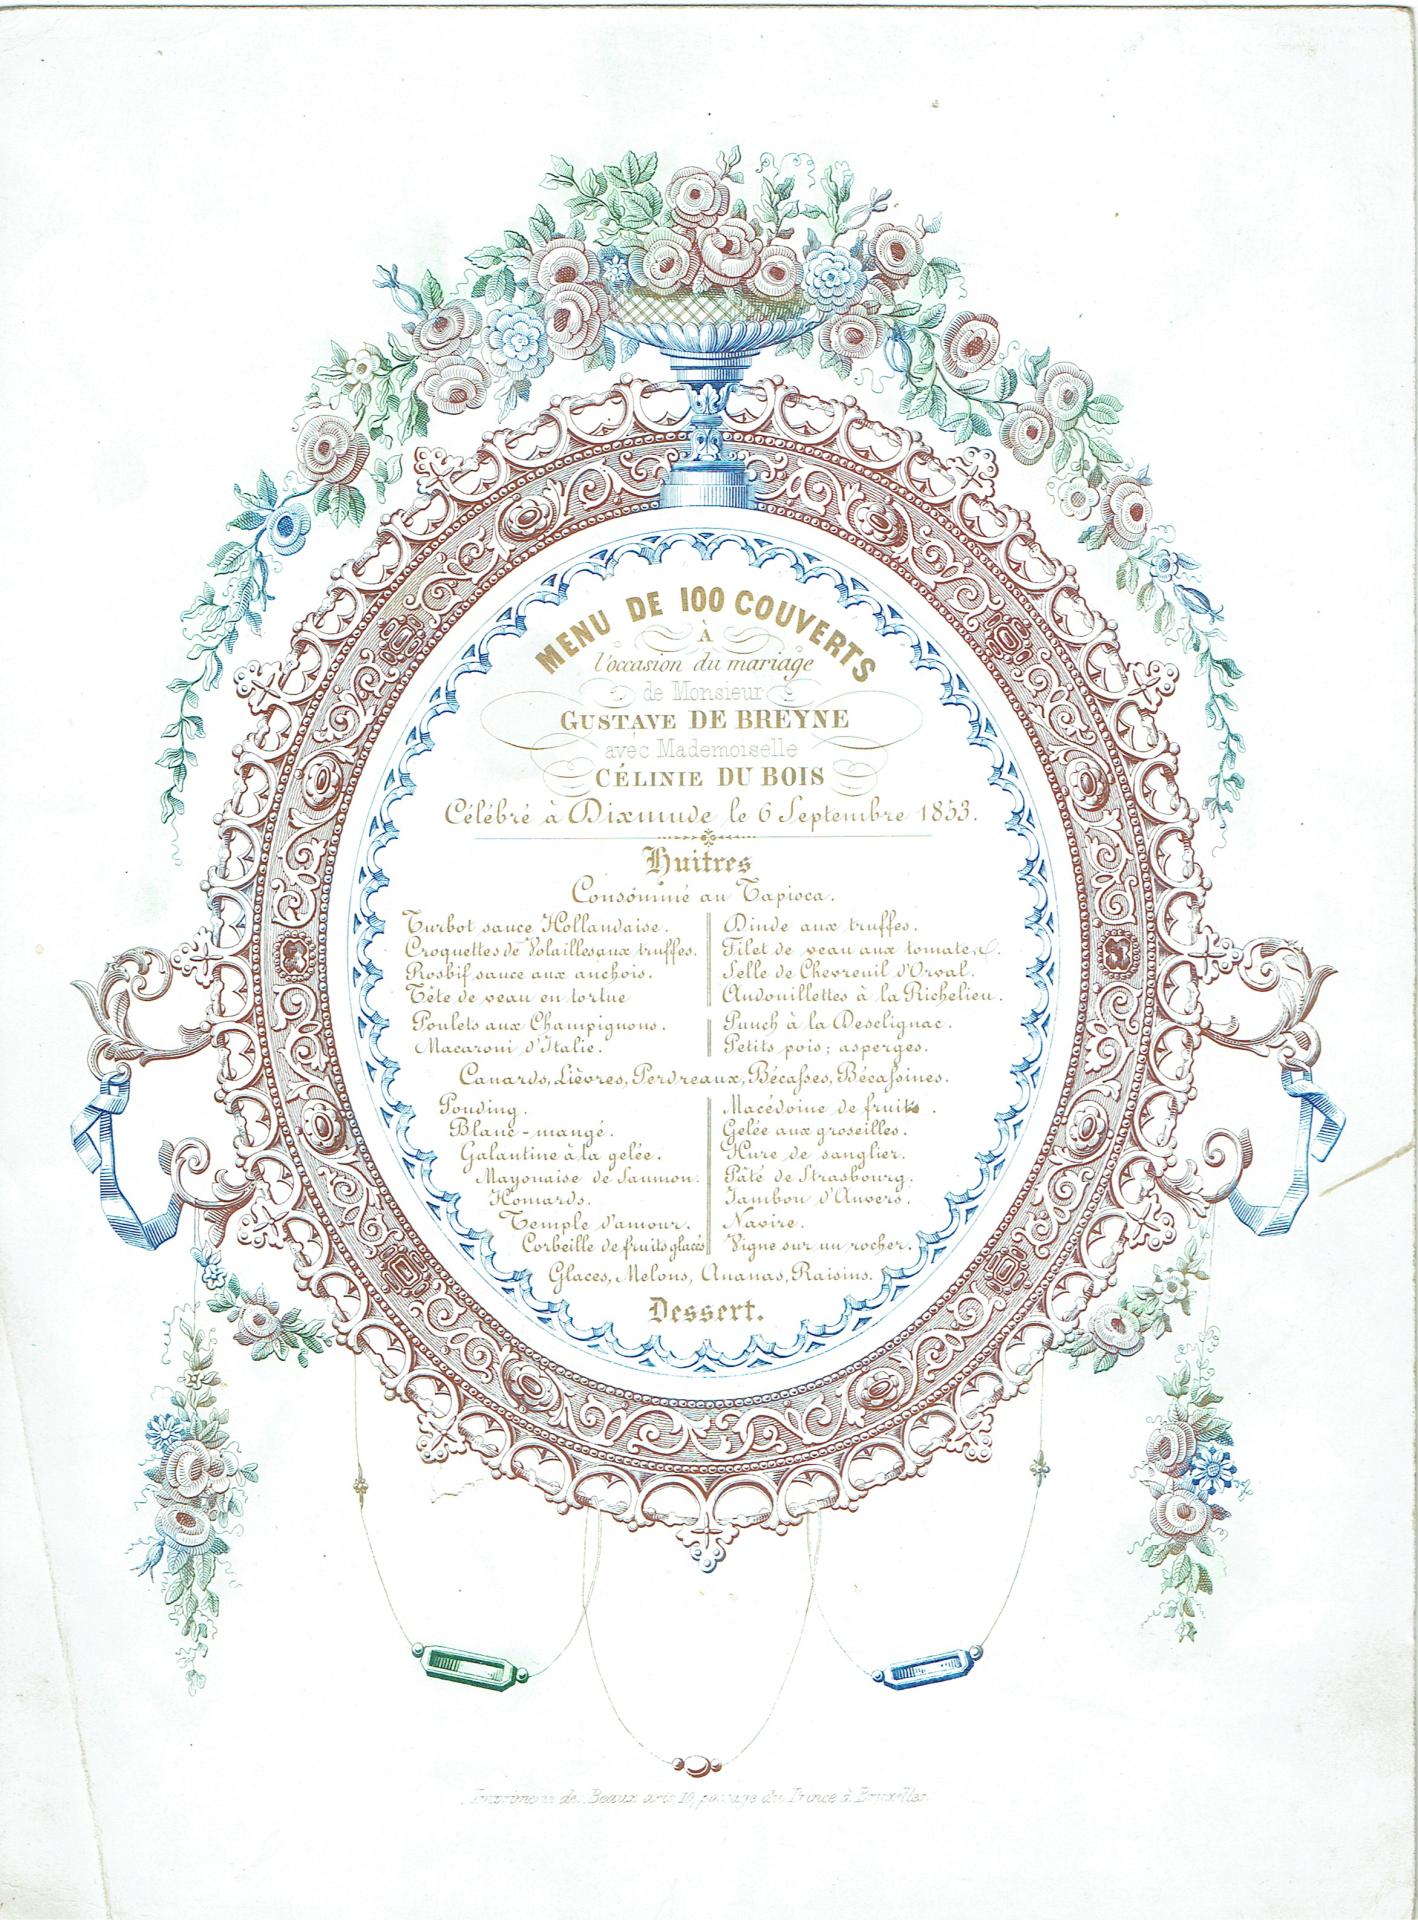 MENU DE 100 COUVERTS
À
l'occasion du mariage
de Monsieur
GUSTAVE DE BREYNE
avec Mademoiselle
CÉLINIE DU BOIS
Célébré à Dixmude le 6 Septembre 1853.
Huitres
Consommé au Tapioca.
Turbot sauce Hollandaise.
Croquettes de Volailles aux truffes.
Rosbif sauce aux anchois.
Tête de veau en tortue
Dinde aux truffes.
Filet de veau aux tomates.
Selle de Chevreuil d'Orval.
Andouillettes à la Richelieu.
Poulets aux Champignons.
Macaroni d'Italie.
Punch à la Desclignac.
Petits pois; asperges.
Canards, Lièvres, Perdreaux, Bécasses, Bécassines.
Pouding.
Blanc-mangé.
Galantine à la gelée.
Mayonaise de Saumon.
Homards.
Temple d'amour.
Corbeille de fruits glacés
Macédoine de fruits.
Gelée aux groseilles.
Hure de sanglier.
Pâté de Strasbourg.
Jambon d'Anvers.
Navire.
Vigne sur un rocher.
Glaces, Melons, Ananas, Raisins.
Dessert.
Imprimerie de Beaux arts 10, passage du Prince à Bruxelles.